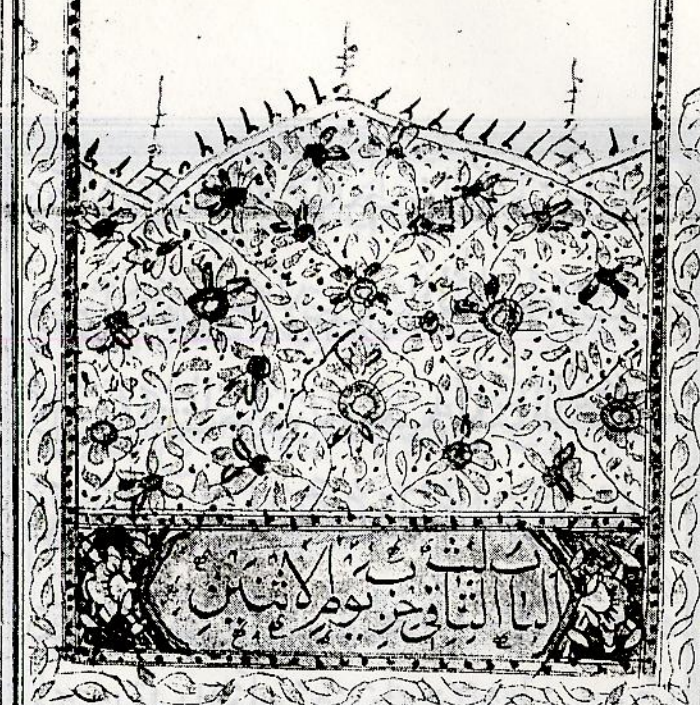 الباب الثالث فى حزب يوم الاثنين